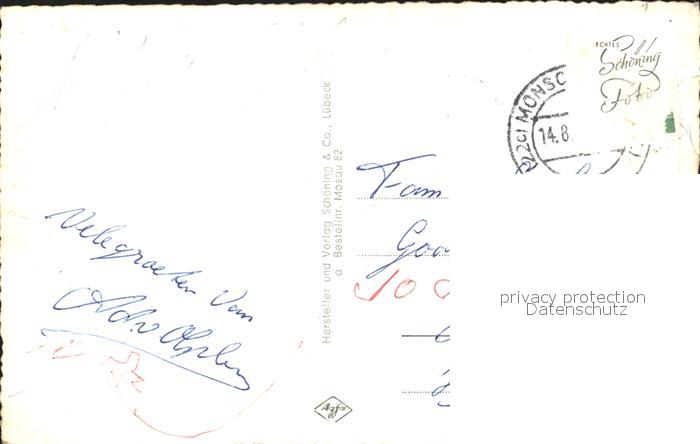 ECHTES
Schöning
Foto
(22c) MONSC
14.8.
Hersteller und Verlag Schöning & Co., Lübeck
a Bestellnr. Mosau 82
Fam
Goo
privacy protection
Datenschutz
Vele groeten van
Agfa